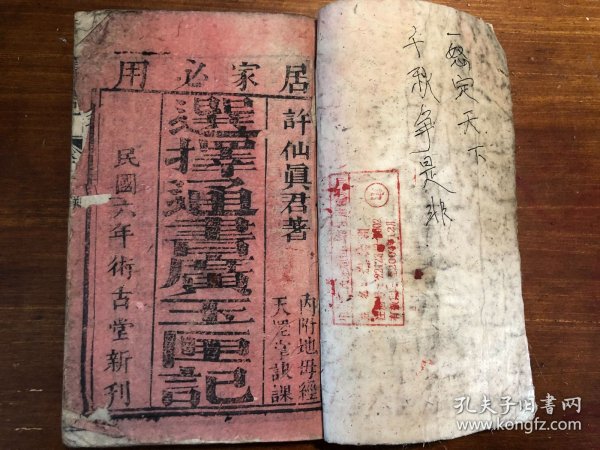 居家必用
許仙眞君著
選擇通書廣玉匣記
內附地母經
天罡掌訣課
民國六年術古堂新刊
一怒定天下
千秋爭是非
孔夫子旧書网
www.kongfz.com